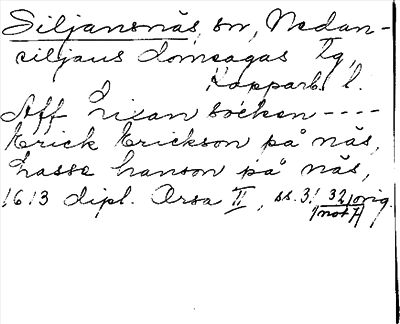 Siljansnäs, sn, Nedan-
siljans domsagas tg,
Kopparb. l.
Aff Lixan socken ----
Erick Erickson på näs,
Lasse hanson på näs,
1613 dipl. Orsa II, ss. 31 32 orig.
not 7